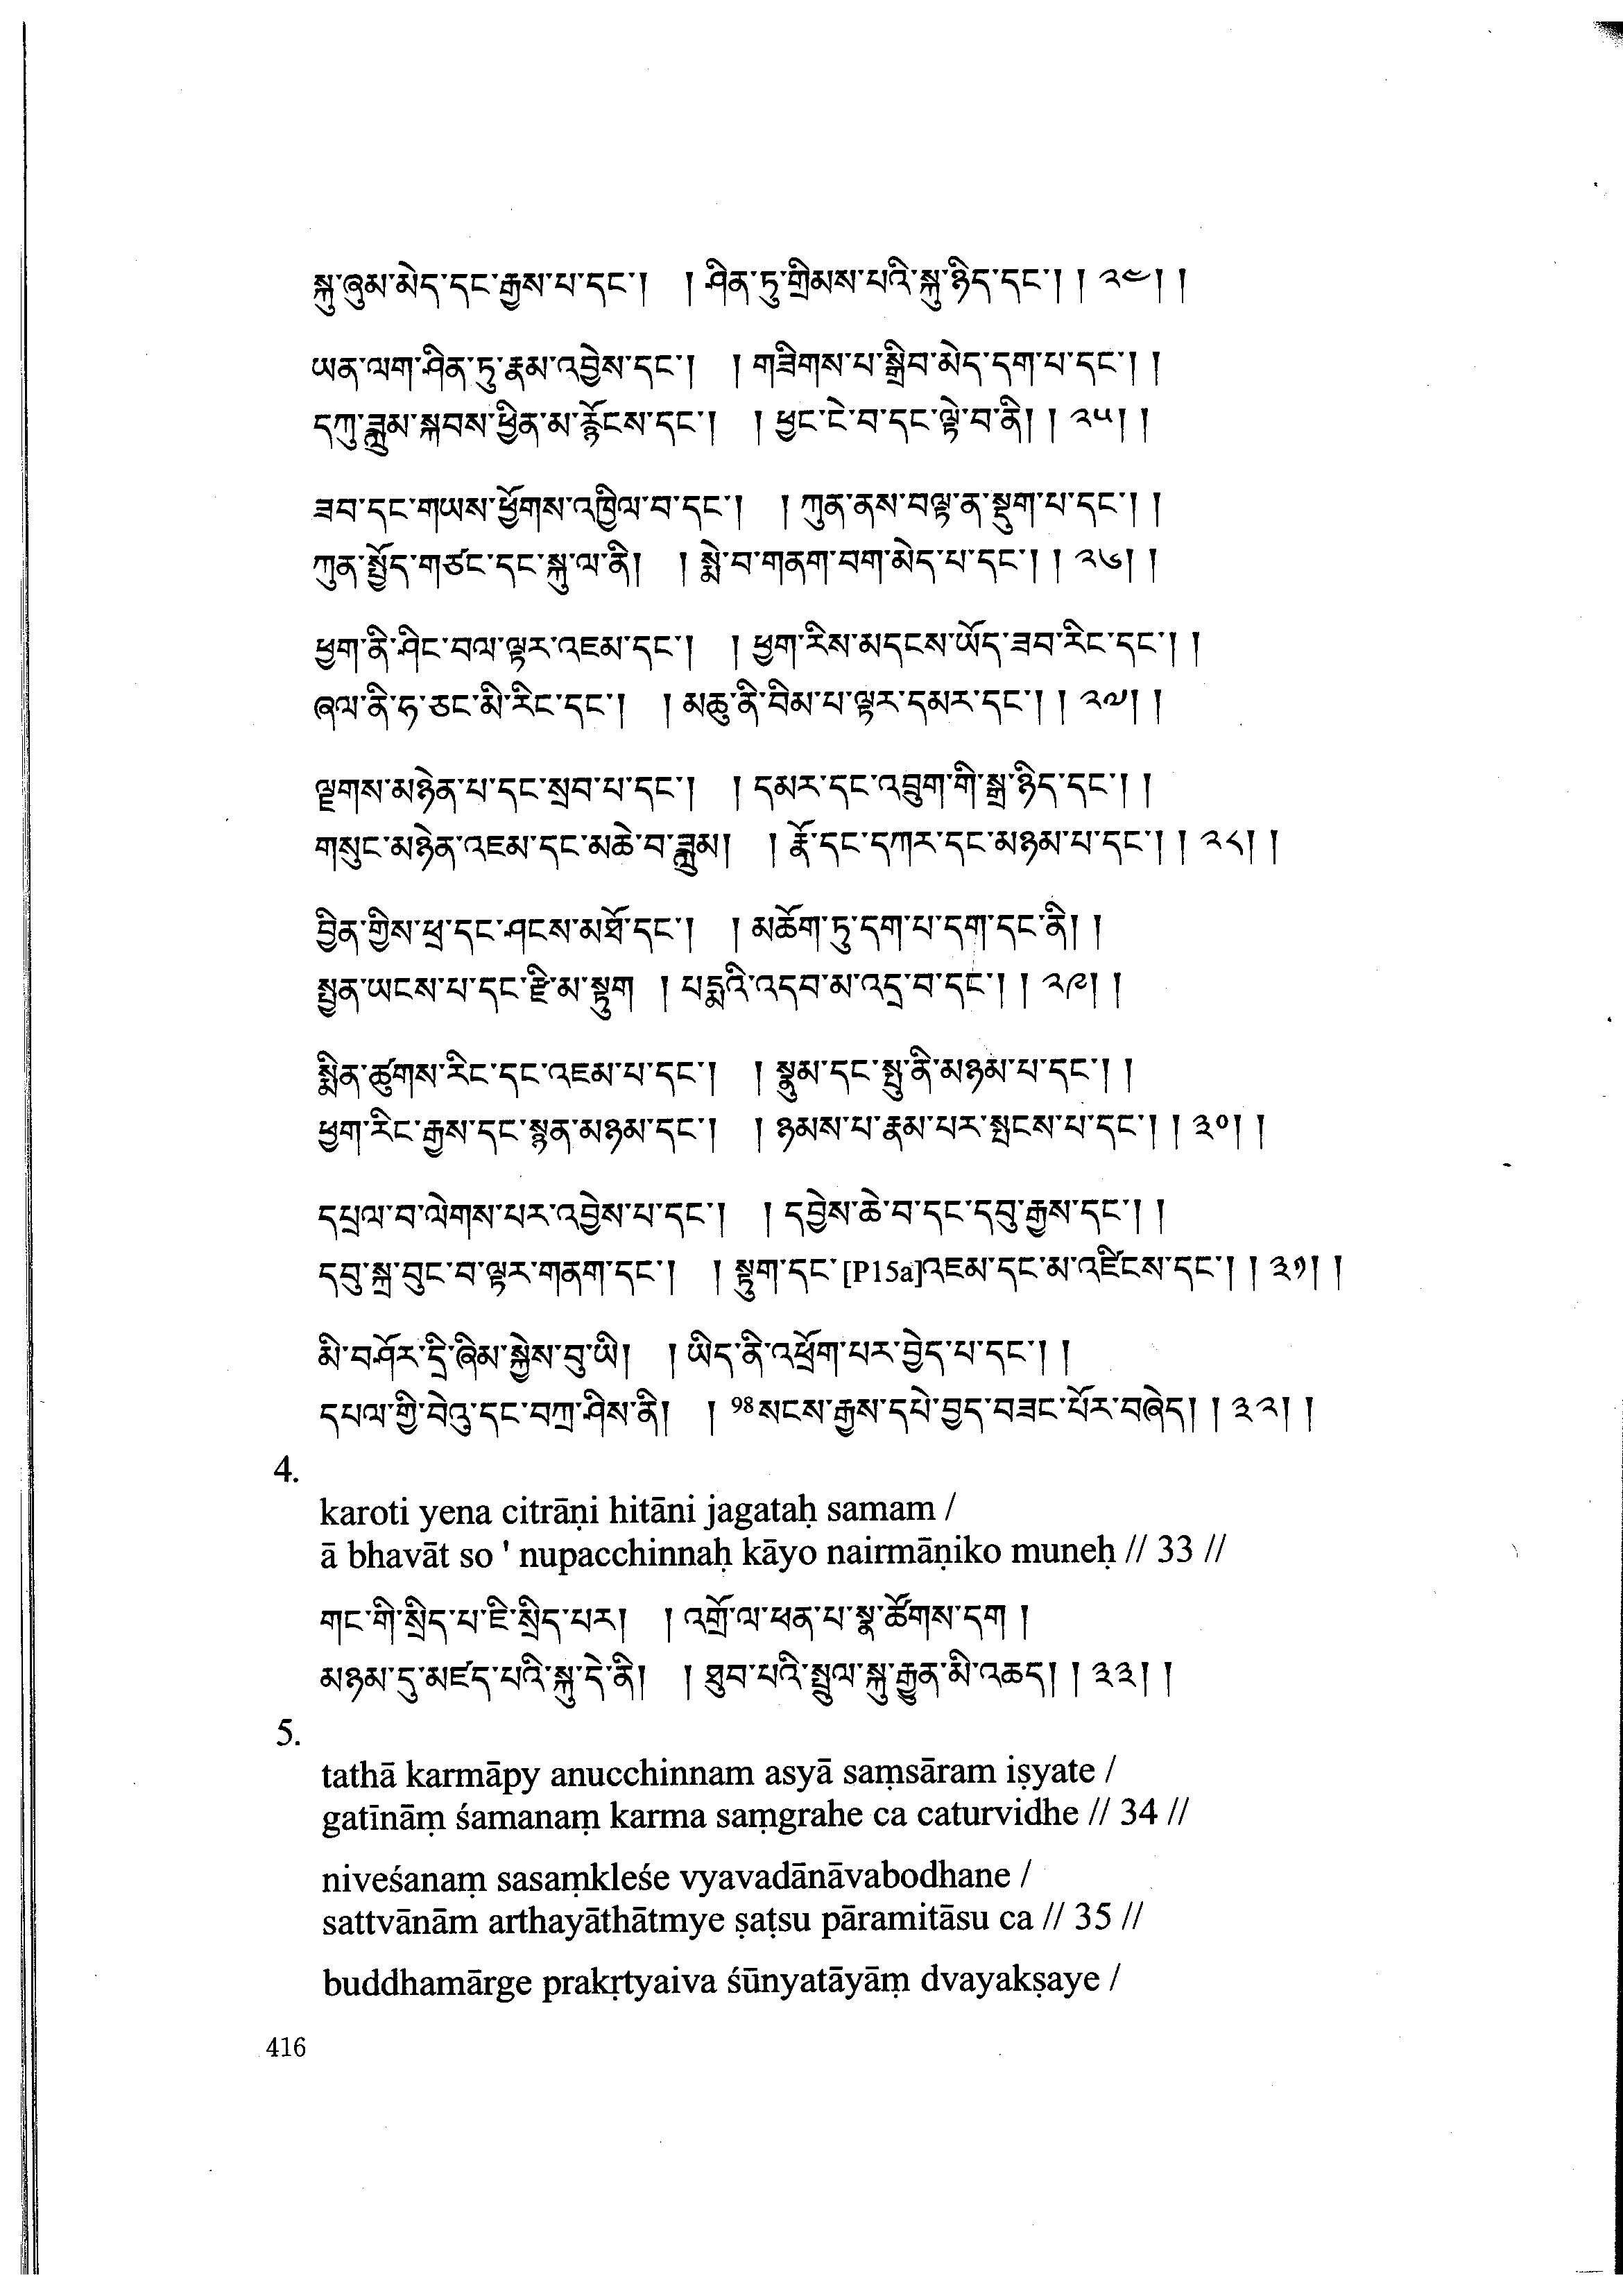 སྐུ་ཞུམ་མེད་དང་རྒྱས་པ་དང་། ། ཤིན་ཏུ་གྲིམས་པའི་སྐུ་ཉིད་དང་། ། ༢༤། །
ཡན་ལག་ཤིན་ཏུ་རྣམ་འབྱེས་དང་། ། གཟིགས་པ་སྒྲིབ་མེད་དག་པ་དང་། །
དཀུ་ཟླུམ་སྐབས་ཕྱིན་མ་རྙོངས་དང་། ། ཕྱང་ངེ་བ་དང་ལྟེ་བ་ནི། ། ༢༥། །
ཟབ་དང་གཡས་ཕྱོགས་འཁྱིལ་བ་དང་། ། ཀུན་ནས་བལྟ་ན་སྡུག་པ་དང་། །
ཀུན་སྤྱོད་གཙང་དང་སྐུ་ལ་ནི། ། སྨེ་བ་གནག་བག་མེད་པ་དང་། ། ༢༦། །
ཕྱག་ནི་ཤིང་བལ་ལྟར་འཇམ་དང་། ། ཕྱག་རིས་མདངས་ཡོད་ཟབ་རིང་དང་། །
ཞལ་ནི་ཧ་ཅང་མི་རིང་དང་། ། མཆུ་ནི་བིམ་པ་ལྟར་དམར་དང་། ། ༢༧། །
ལྗགས་མཉེན་པ་དང་སྲབ་པ་དང་། ། དམར་དང་འབྲུག་གི་སྒྲ་ཉིད་དང་། །
གསུང་མཉེན་འཇམ་དང་མཆེ་བ་ཟླུམ། ། རྣོ་དང་དཀར་དང་མཉམ་པ་དང་། ། ༢༨། །
བྱིན་གྱིས་ཕྲ་དང་ཤངས་མཐོ་དང་། ། མཆོག་ཏུ་དག་པ་དག་དང་ནི། །
སྤྱན་ཡངས་པ་དང་རྫི་མ་སྟུག ། པདྨའི་འདབ་མ་འདྲ་བ་དང་། ། ༢༩། །
སྨིན་ཚུགས་རིང་དང་འཇམ་པ་དང་། ། སྣུམ་དང་སྤུ་ནི་མཉམ་པ་དང་། །
ཕྱག་རིང་རྒྱས་དང་སྙན་མཉམ་དང་། ། ཉམས་པ་རྣམ་པར་སྤངས་པ་དང་། ། ༣༠། །
དཔྲལ་བ་ལེགས་པར་འབྱེས་པ་དང་། ། དབྱེས་ཆེ་བ་དང་དབུ་རྒྱས་དང་། །
དབུ་སྐྲ་བུང་བ་ལྟར་གནག་དང་། ། སྟུག་དང་[P15a]འཇམ་དང་མ་འཛིངས་དང་། ། ༣༡། །
མི་བཤོར་དྲི་ཞིམ་སྐྱེས་བུ་ཡི། ། ཡིད་ནི་འཕྲོག་པར་བྱེད་པ་དང་། །
དཔལ་གྱི་བེའུ་དང་བཀྲ་ཤིས་ནི། ། ⁹⁸སངས་རྒྱས་དཔེ་བྱད་བཟང་པོར་བཞེད། ། ༣༢། །
4.
karoti yena citrāṇi hitāni jagataḥ samam /
ā bhavāt so ' nupacchinnaḥ kāyo nairmāṇiko muneḥ // 33 //
གང་གི་སྲིད་པ་ཇི་སྲིད་པར། ། འགྲོ་ལ་ཕན་པ་སྣ་ཚོགས་དག །
མཉམ་དུ་མཛད་པའི་སྐུ་དེ་ནི། ། ཐུབ་པའི་སྤྲུལ་སྐུ་རྒྱུན་མི་འཆད། ། ༣༣། །
5.
tathā karmāpy anucchinnam asyā saṃsāram iṣyate /
gatīnāṃ śamanaṃ karma saṃgrahe ca caturvidhe // 34 //
niveśanaṃ sasaṃkleśe vyavadānāvabodhane /
sattvānām arthayāthātmye ṣaṭsu pāramitāsu ca // 35 //
buddhamārge prakṛtyaiva śūnyatāyāṃ dvayakṣaye /
416